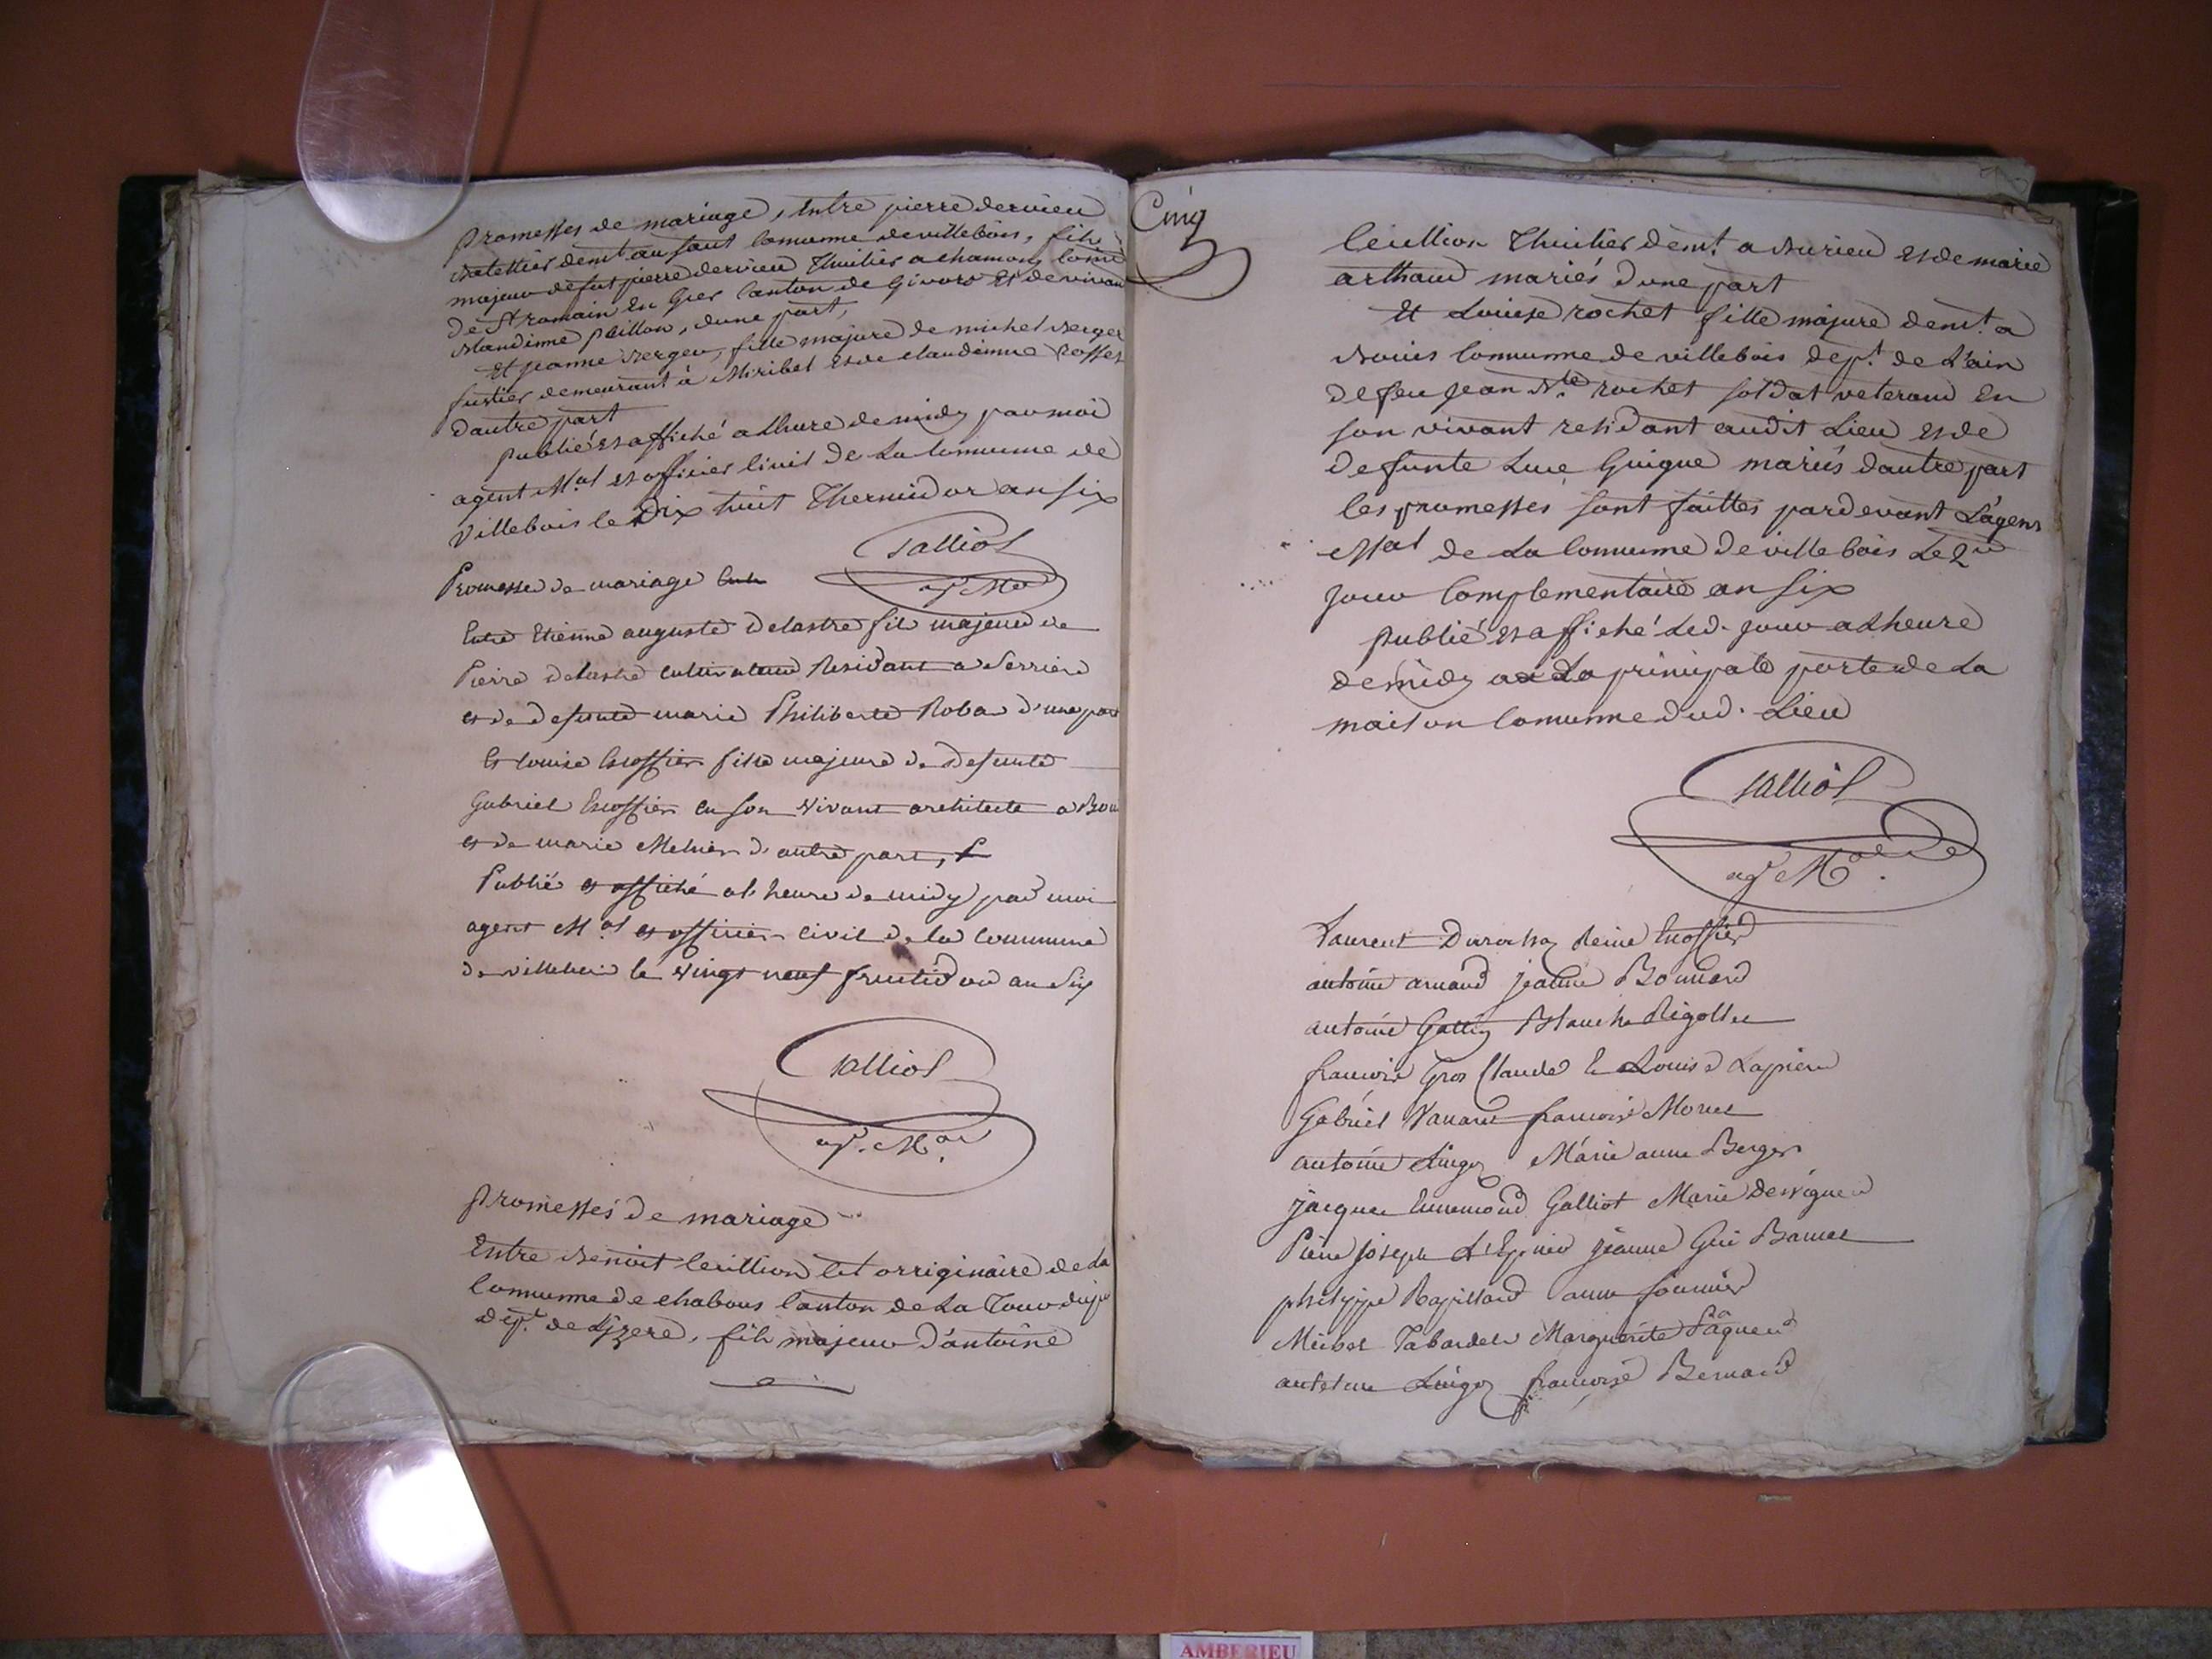 promesses de mariage, entre pierre dervieu
Batellier demt au saut comunne de villebois, fils
majeur de fut pierre dervieu Thuilier a chamony comne
de St romain En Gier Canton de Givors Et de vivan
Blandinne paillon, dune part,
Et jeanne Berger, fille majeure de michel Berger
fustier demeurant à Miribel Et de claudinne rosset
dautre part
publié et affiché a lhure de midy par moi
agent Mal et officier Civil de La Comunne de
villebois le Dix huit Thermidor an six
Galliot
agt Mal
Promesse de mariage
Entre Etienne auguste delastre fils majeur de
Pierre delastre cultivateur Residant a Serriere
et de defunte marie Philiberte Robar d'une part
Et Louise Escoffier fille majeure de defunte
Gabriel Escoffier en son vivant architecte a Bou
et de marie Melnier d'autre part,
Publié et affiché a l'heure de midy par moi
agent Mal et officier civil de la Commune
de villebois le vingt neuf fructidor an six
Galliot
agt. Mal.
promesses de mariage
Entre Benoit Ceuillion Cet orriginaire de La
Comunne de chabons Canton de La Tour dupin
dept de Lizere, fils majeur d'antoine
Cinq
Ceuillion Thuilier demt. a Burieu et de marie
arthaud mariés dune part
Et Louise rochet fille majeure demt. a
Bouis Comunne de villebois dept. de L'ain
de feu jean Bte rochet soldat veterant En
son vivant residant audit Lieu et de
defunte Luce Guigue mariés dautre part
les promesses sont faittes pardevant Lágent
Mal de La Comunne de villebois Le 2me
jour Complementaire an six
publié et affiché Led. jour a Lheure
de midy a La principale porte de La
maison Comunne dud. Lieu
Galliot
agt Mal.
Laurent Durochay Reine Escoffier
antoine arnaud jeanne Bonnard
antoine Galley Blanche Rigollet
francois Gros Claude & Louise Lapierre
Gabriel Vanaret francoise Morel
antoine Lingoz Marie anne Berger
jacque Ennemond Galliot Marie dervigueu
Pierre joseph L'Epinev jeanne Gui Barnet
philippe Rapillard anne fournier
Michel Tabardel Marguerite Paquet
antelme Lingoz francoise Bernard
AMBERIEU